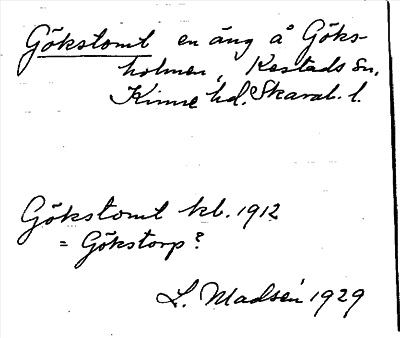 Gökstomt en äng å Göks-
holmen, Kestads sn.
Kinne hd. Skarab. l.
Gökstomt kb. 1912
= Gökstorp?
L. Madsén 1929